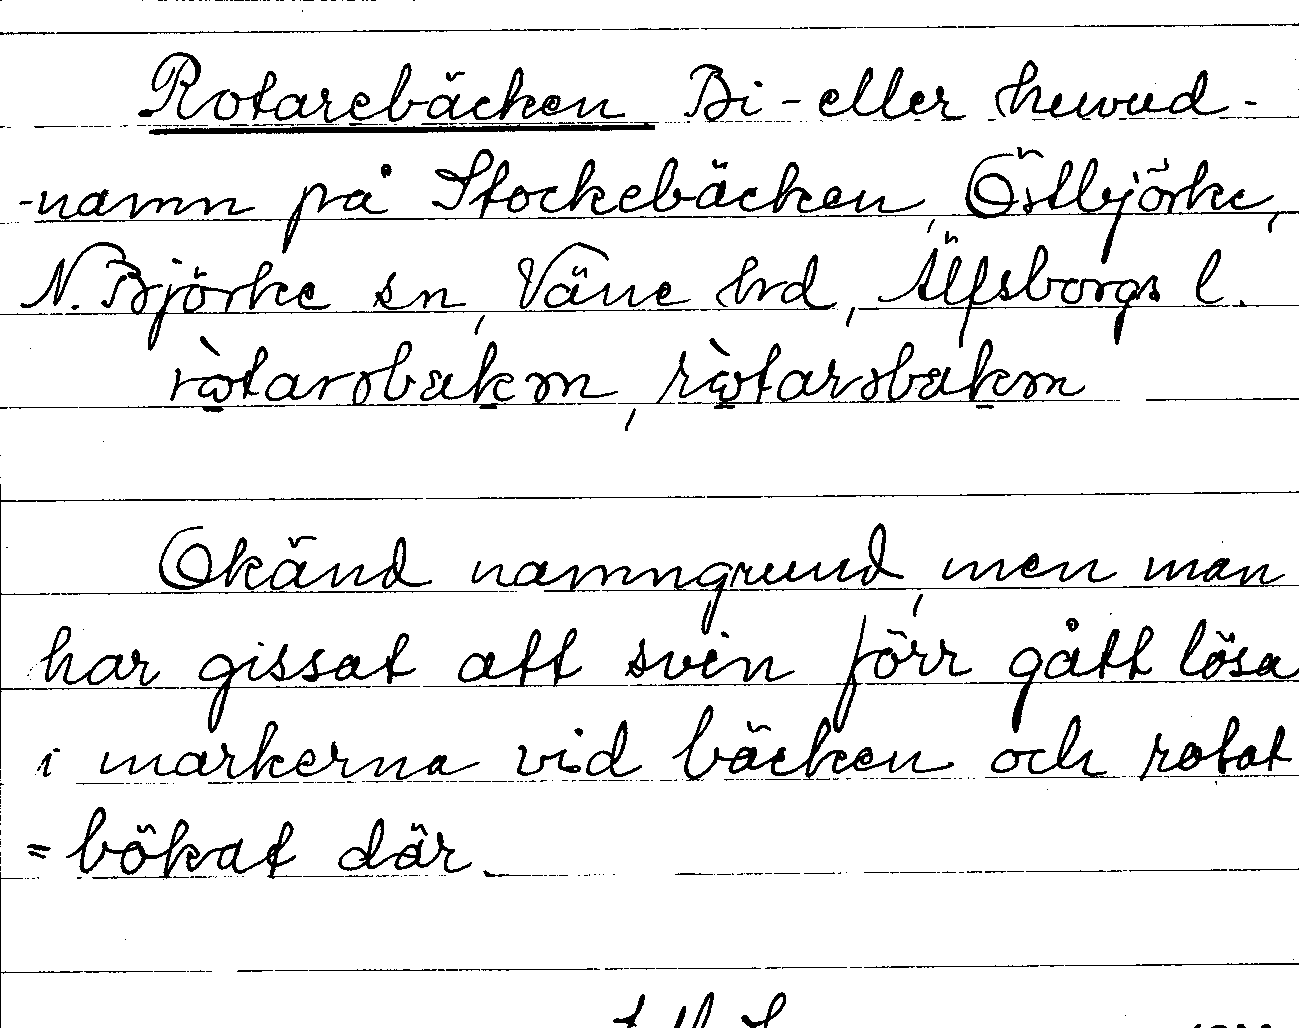 Rotarebäcken Bi- eller huvud-
-namn på Stockebäcken, Östbjörke,
N. Björke sn, Väne hd, Älfsborgs l.
Okänd namngrund, men man
har gissat att svin förr gått lösa
i markerna vid bäcken och rotat
= bökat där.